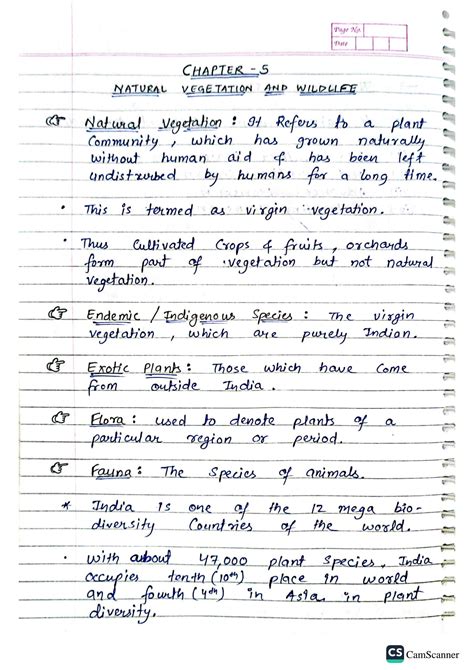 Page No.
Date
CHAPTER - 5
NATURAL VEGETATION AND WILDLIFE
Natural Vegetation : It Refers to a plant
Community , which has grown naturally
without human aid & has been left
undisturbed by humans for a long time.
• This is termed as virgin vegetation.
• Thus Cultivated Crops & fruits, orchards
form part of vegetation but not natural
vegetation.
Endemic / Indigenous Species : The virgin
vegetation , which are purely Indian.
Exotic Plants : Those which have come
from outside India .
Flora : used to denote plants of a
particular region or period.
Fauna : The Species of animals.
* India is one of the 12 mega bio-
diversity Countries of the world.
• With about 47,000 plant Species, India
occupies tenth (10th) place in world
and fourth (4th) in Asia in plant
diversity.
CS CamScanner